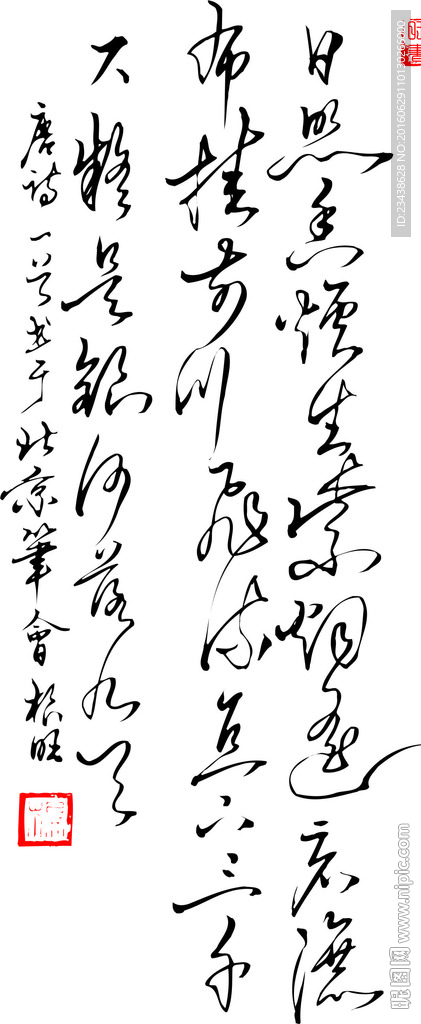 日照香爐生紫烟遥看瀑
布挂前川飛流直下三千
尺疑是銀河落九天
唐詩一首书于北京筆會 根旺
ID:23438628 NO:20160629110130266000
昵图网 www.nipic.com